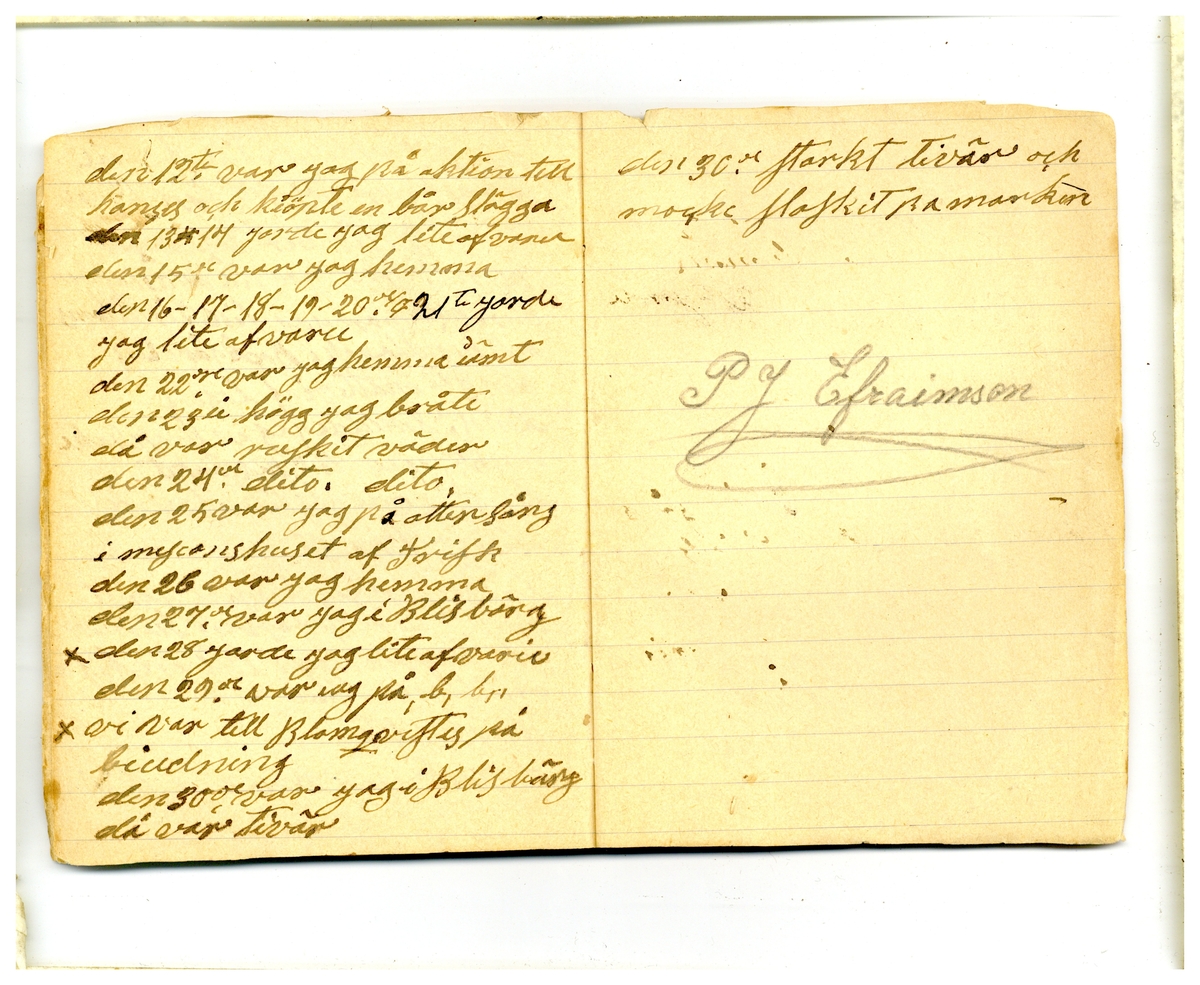 den 12te var yag på aktion till
hanses och kiöpte en bår slägga
den 13 14 yorde yag lite af varie
den 15de var yag hemma
den 16-17-18-19-20de 21te yorde
yag lite af varie
den 22re var yag hemma
den 23 högg yag bråte
då var ruskit väder
den 24de dito. dito.
den 25 var yag på otten sång
i misionshuset af Frisk
den 26 var yag hemma
den 27de var yag i Blisbärg
x den 28 yorde yag lite af varie
den 29de var iag på, b, b,,
x vi var till Blomqvistes på
biudning
den 30de var yag i Blisbärg
då var tivär
den 30de starkt tivär och
mocke slaskit på marken
P J Efraimson